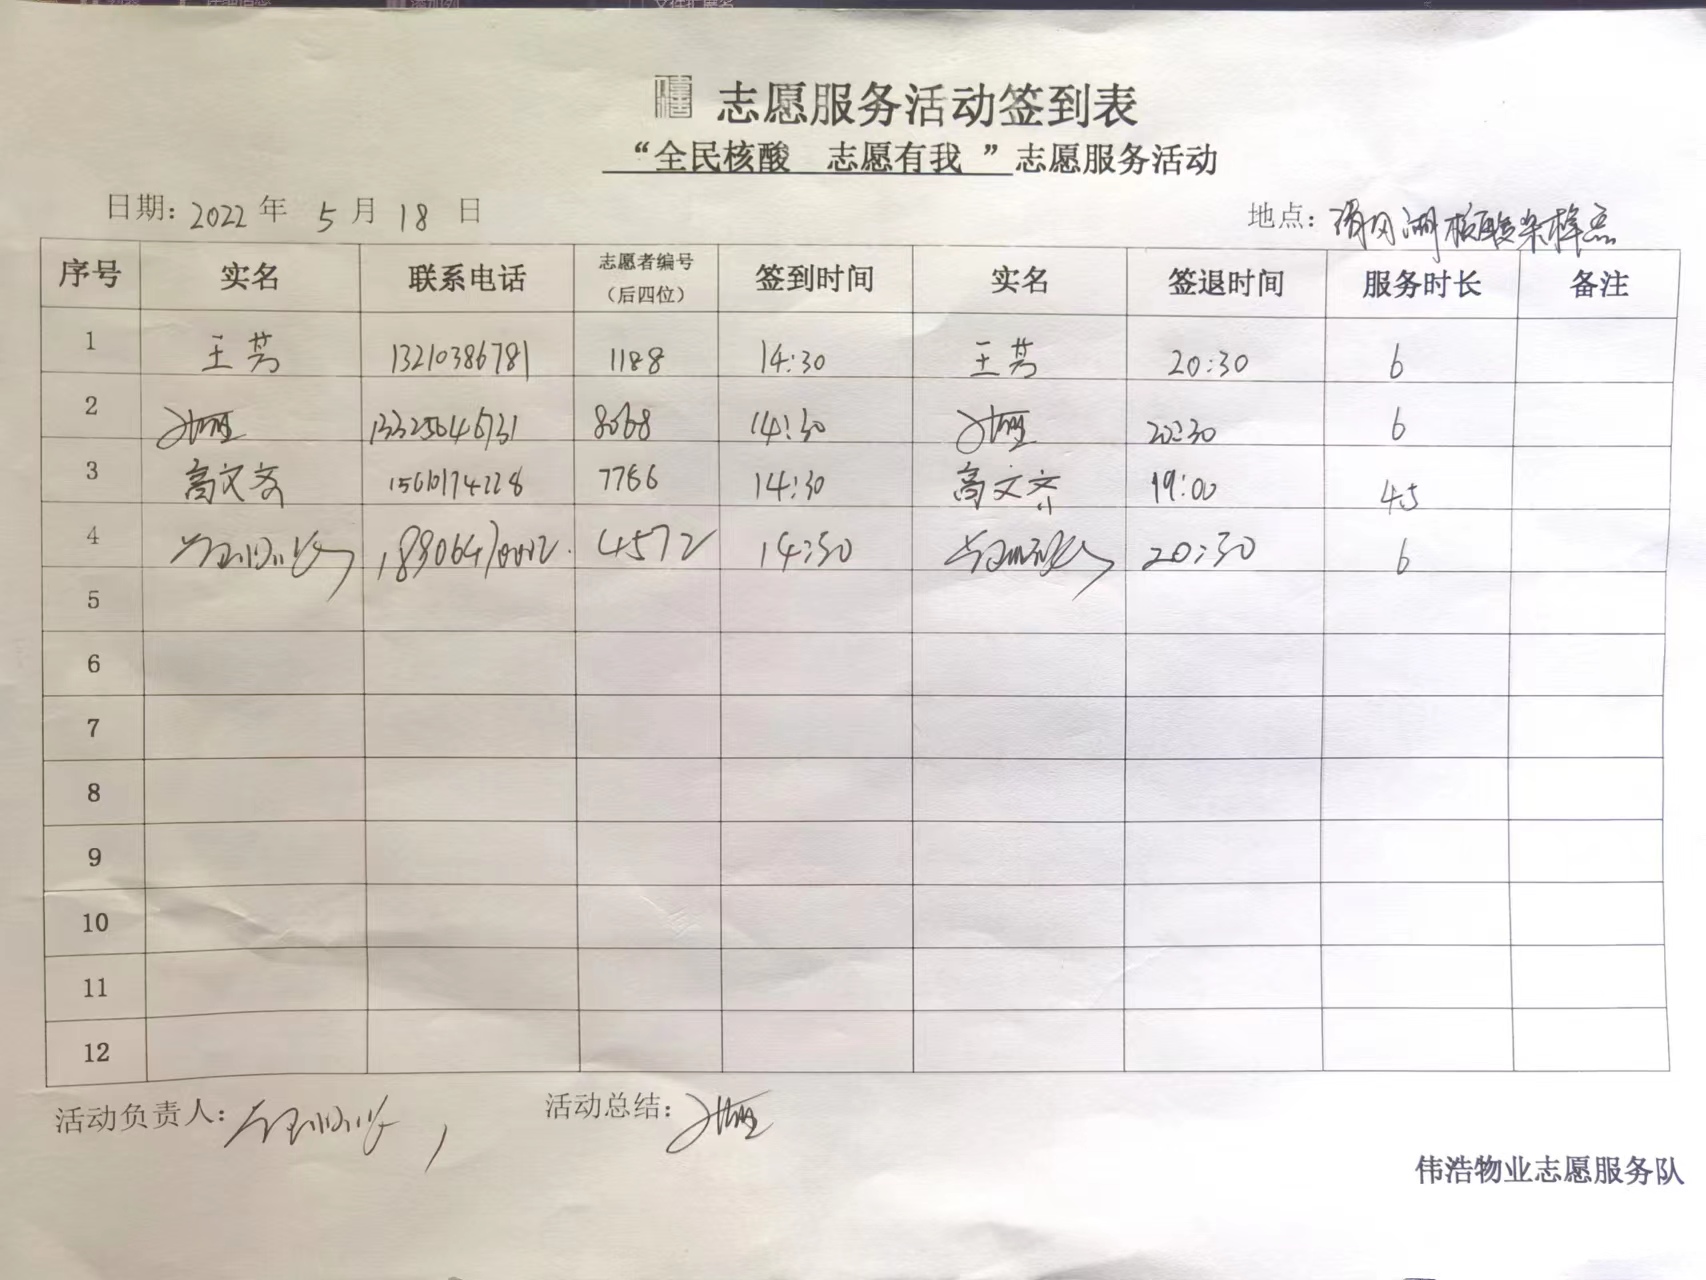 志愿服务活动签到表
“全民核酸 志愿有我 ”志愿服务活动
日期: 2022 年 5 月 18 日 地点: 核酸采样点
序号 实名 联系电话 志愿者编号（后四位） 签到时间 实名 签退时间 服务时长 备注
1 王芳 13210386781 1188 14:30 王芳 20:30 6
2 13325646731 8068 14:30 20:30 6
3 高文 15610174228 7786 14:30 高文 19:00 4.5
4 4572 14:30 20:30 6
5
6
7
8
9
10
11
12
活动负责人: 活动总结:
伟浩物业志愿服务队